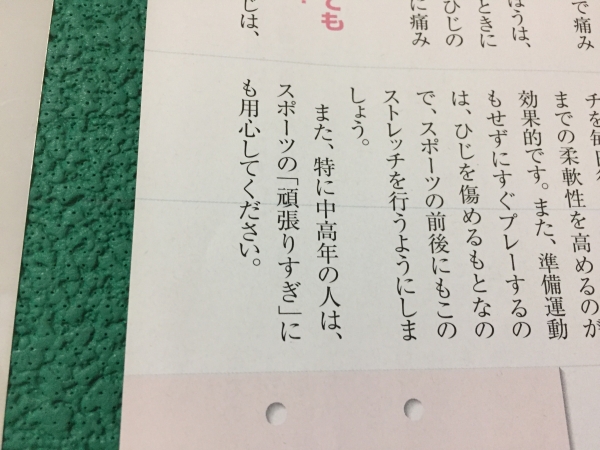 で痛み
ほうは、
ときに
ひじの
に痛み
ても
じは、
チを毎日
までの柔軟性を高めるのが
効果的です。また、準備運動
もせずにすぐプレーするの
は、ひじを傷めるもとなの
で、スポーツの前後にもこの
ストレッチを行うようにしま
しょう。
また、特に中高年の人は、
スポーツの「頑張りすぎ」に
も用心してください。